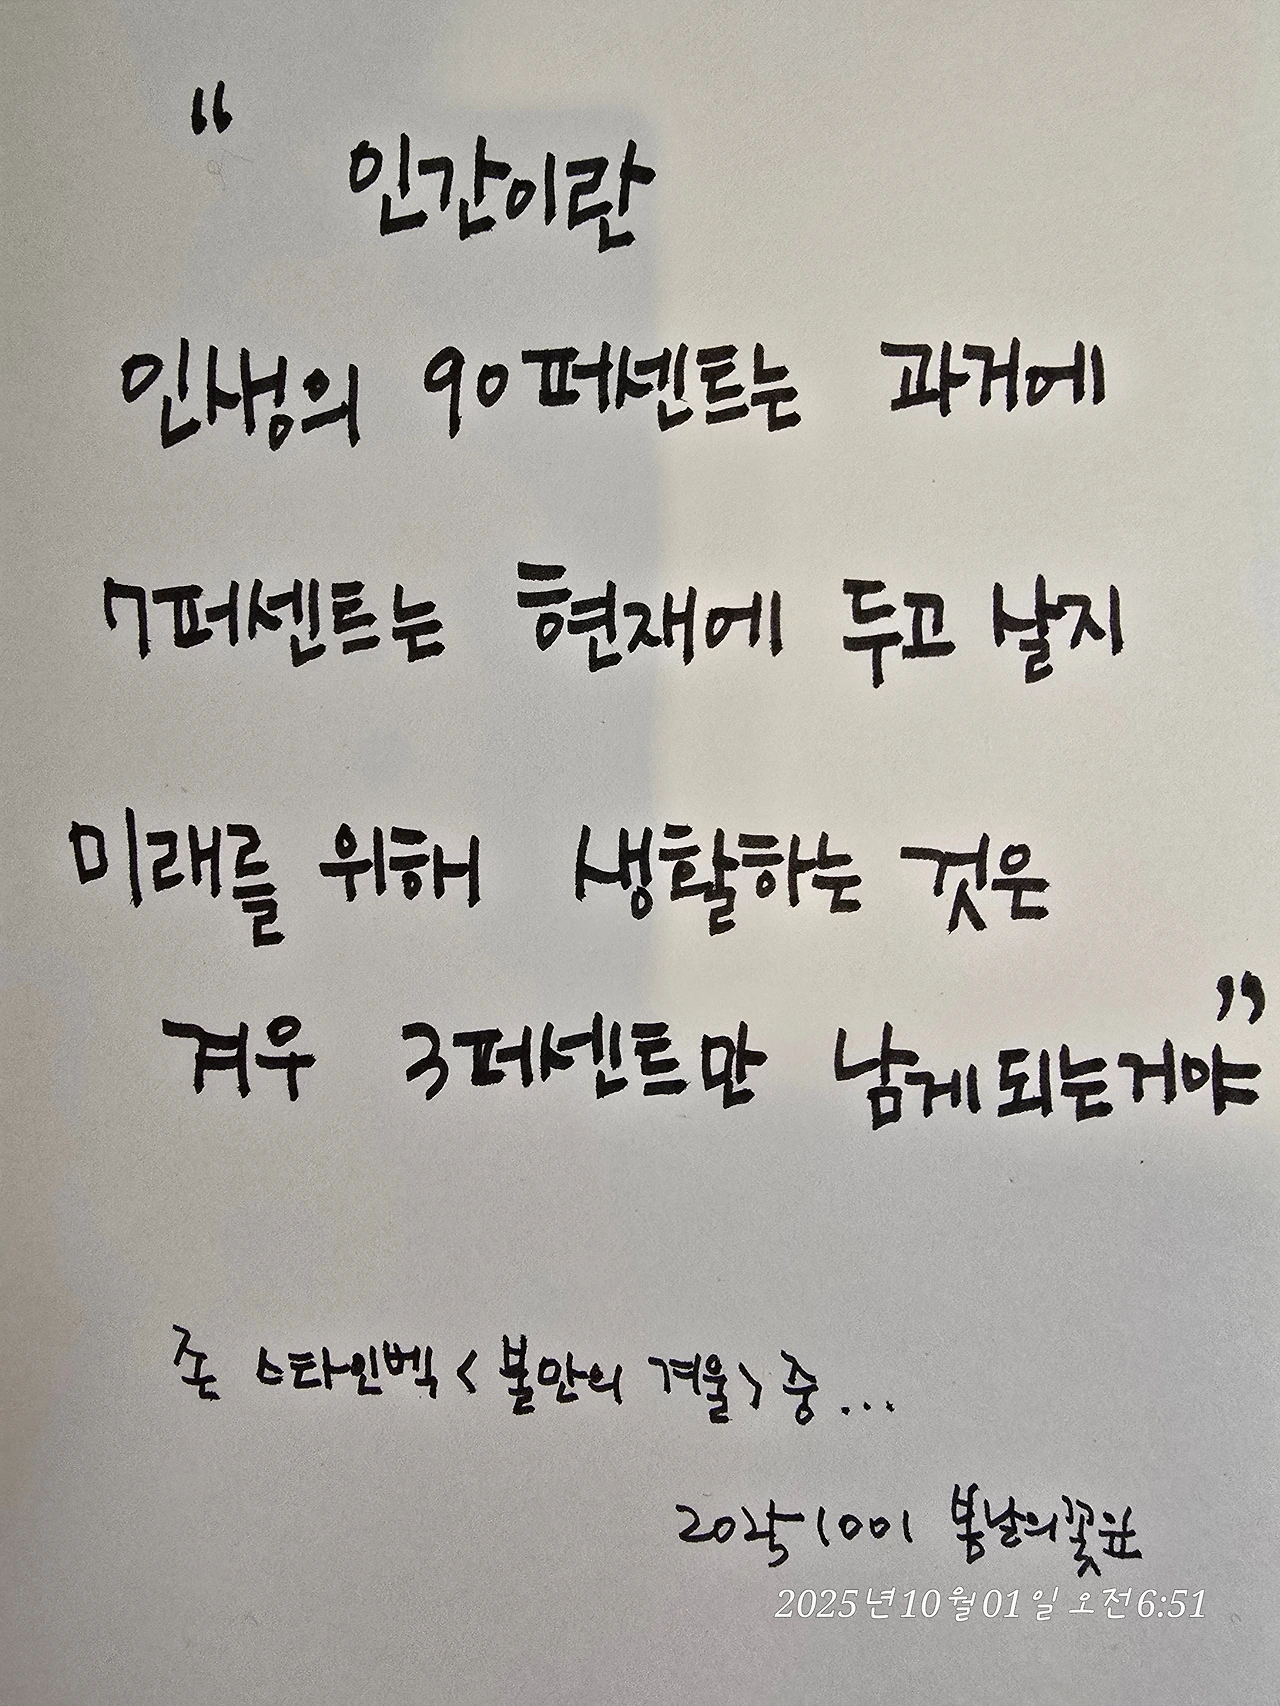 “
인간이란
인생의 90퍼센트는 과거에
7퍼센트는 현재에 두고 살지
미래를 위해 생활하는 것은
겨우 3퍼센트만 남게되는거야”
존 스타인벡 <불만의 겨울> 중...
20251001 봄날의꽃요
2025년10월01일 오전6:51